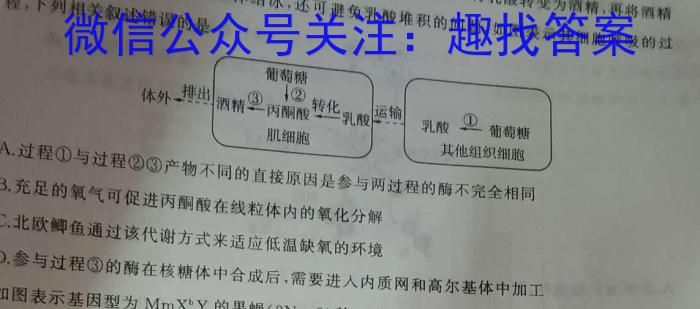 乳酸转变为酒精,再将酒精
结冰,还可避免乳酸堆积的
程,下列相关叙述错误的是
细胞呼吸的过
微信公众号关注：趣找答案
葡萄糖
②
体外 排出 酒精 ③ 丙酮酸 转化 乳酸 运输
肌细胞
乳酸 ① 葡萄糖
其他组织细胞
A.过程①与过程②③产物不同的直接原因是参与两过程的酶不完全相同
B.充足的氧气可促进丙酮酸在线粒体内的氧化分解
C.北欧鲫鱼通过该代谢方式来适应低温缺氧的环境
D.参与过程③的酶在核糖体中合成后,需要进入内质网和高尔基体中加工
如图表示基因型为 MmXᵇY 的果蝇